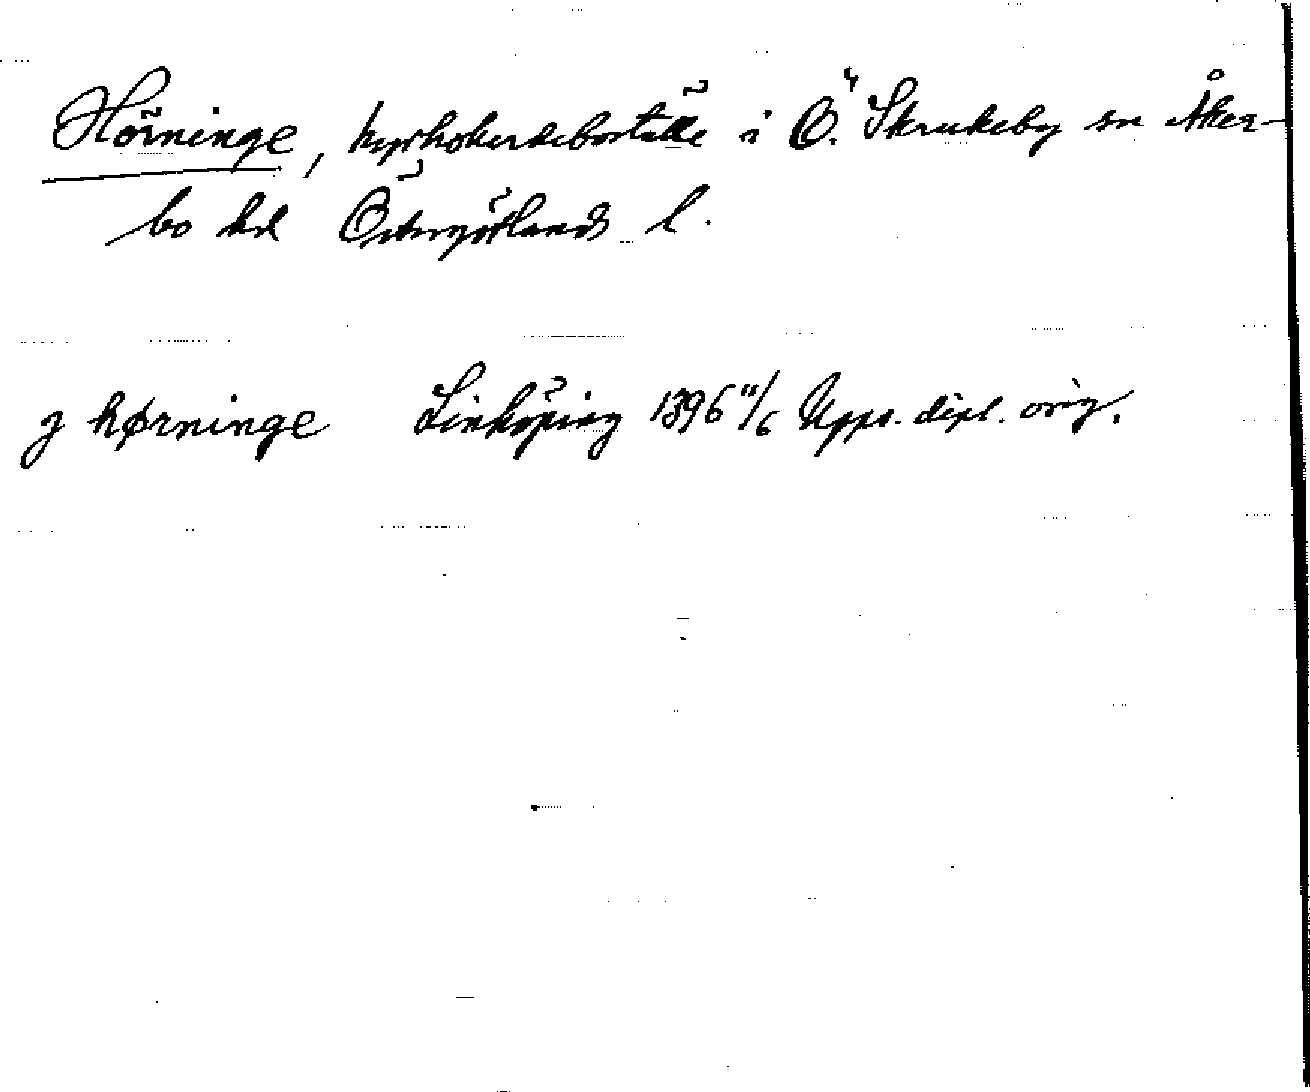 Hörninge, kyrkoherdeboställe i Ö. Skrukeby sn Åker-
bo hd Östergötlands l.
J hørninge Linköping 1396 11/6 Upps. dipl. orig.